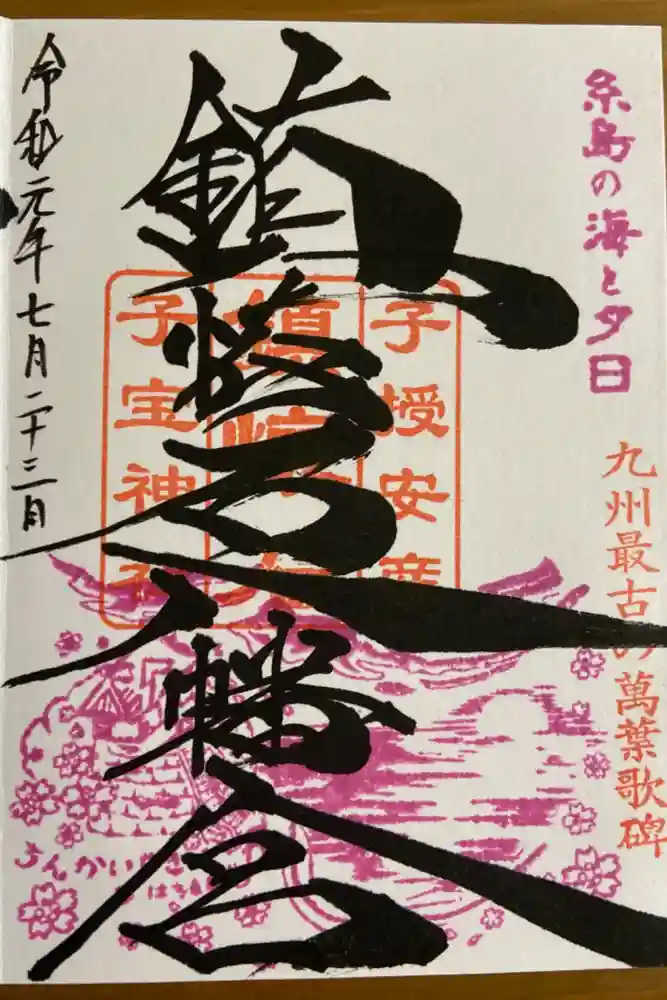 糸島の海と夕日
九州最古の萬葉歌碑
鎮懐石八幡宮
子授安産
子宝神
令和元年七月二十三日
ちんかい